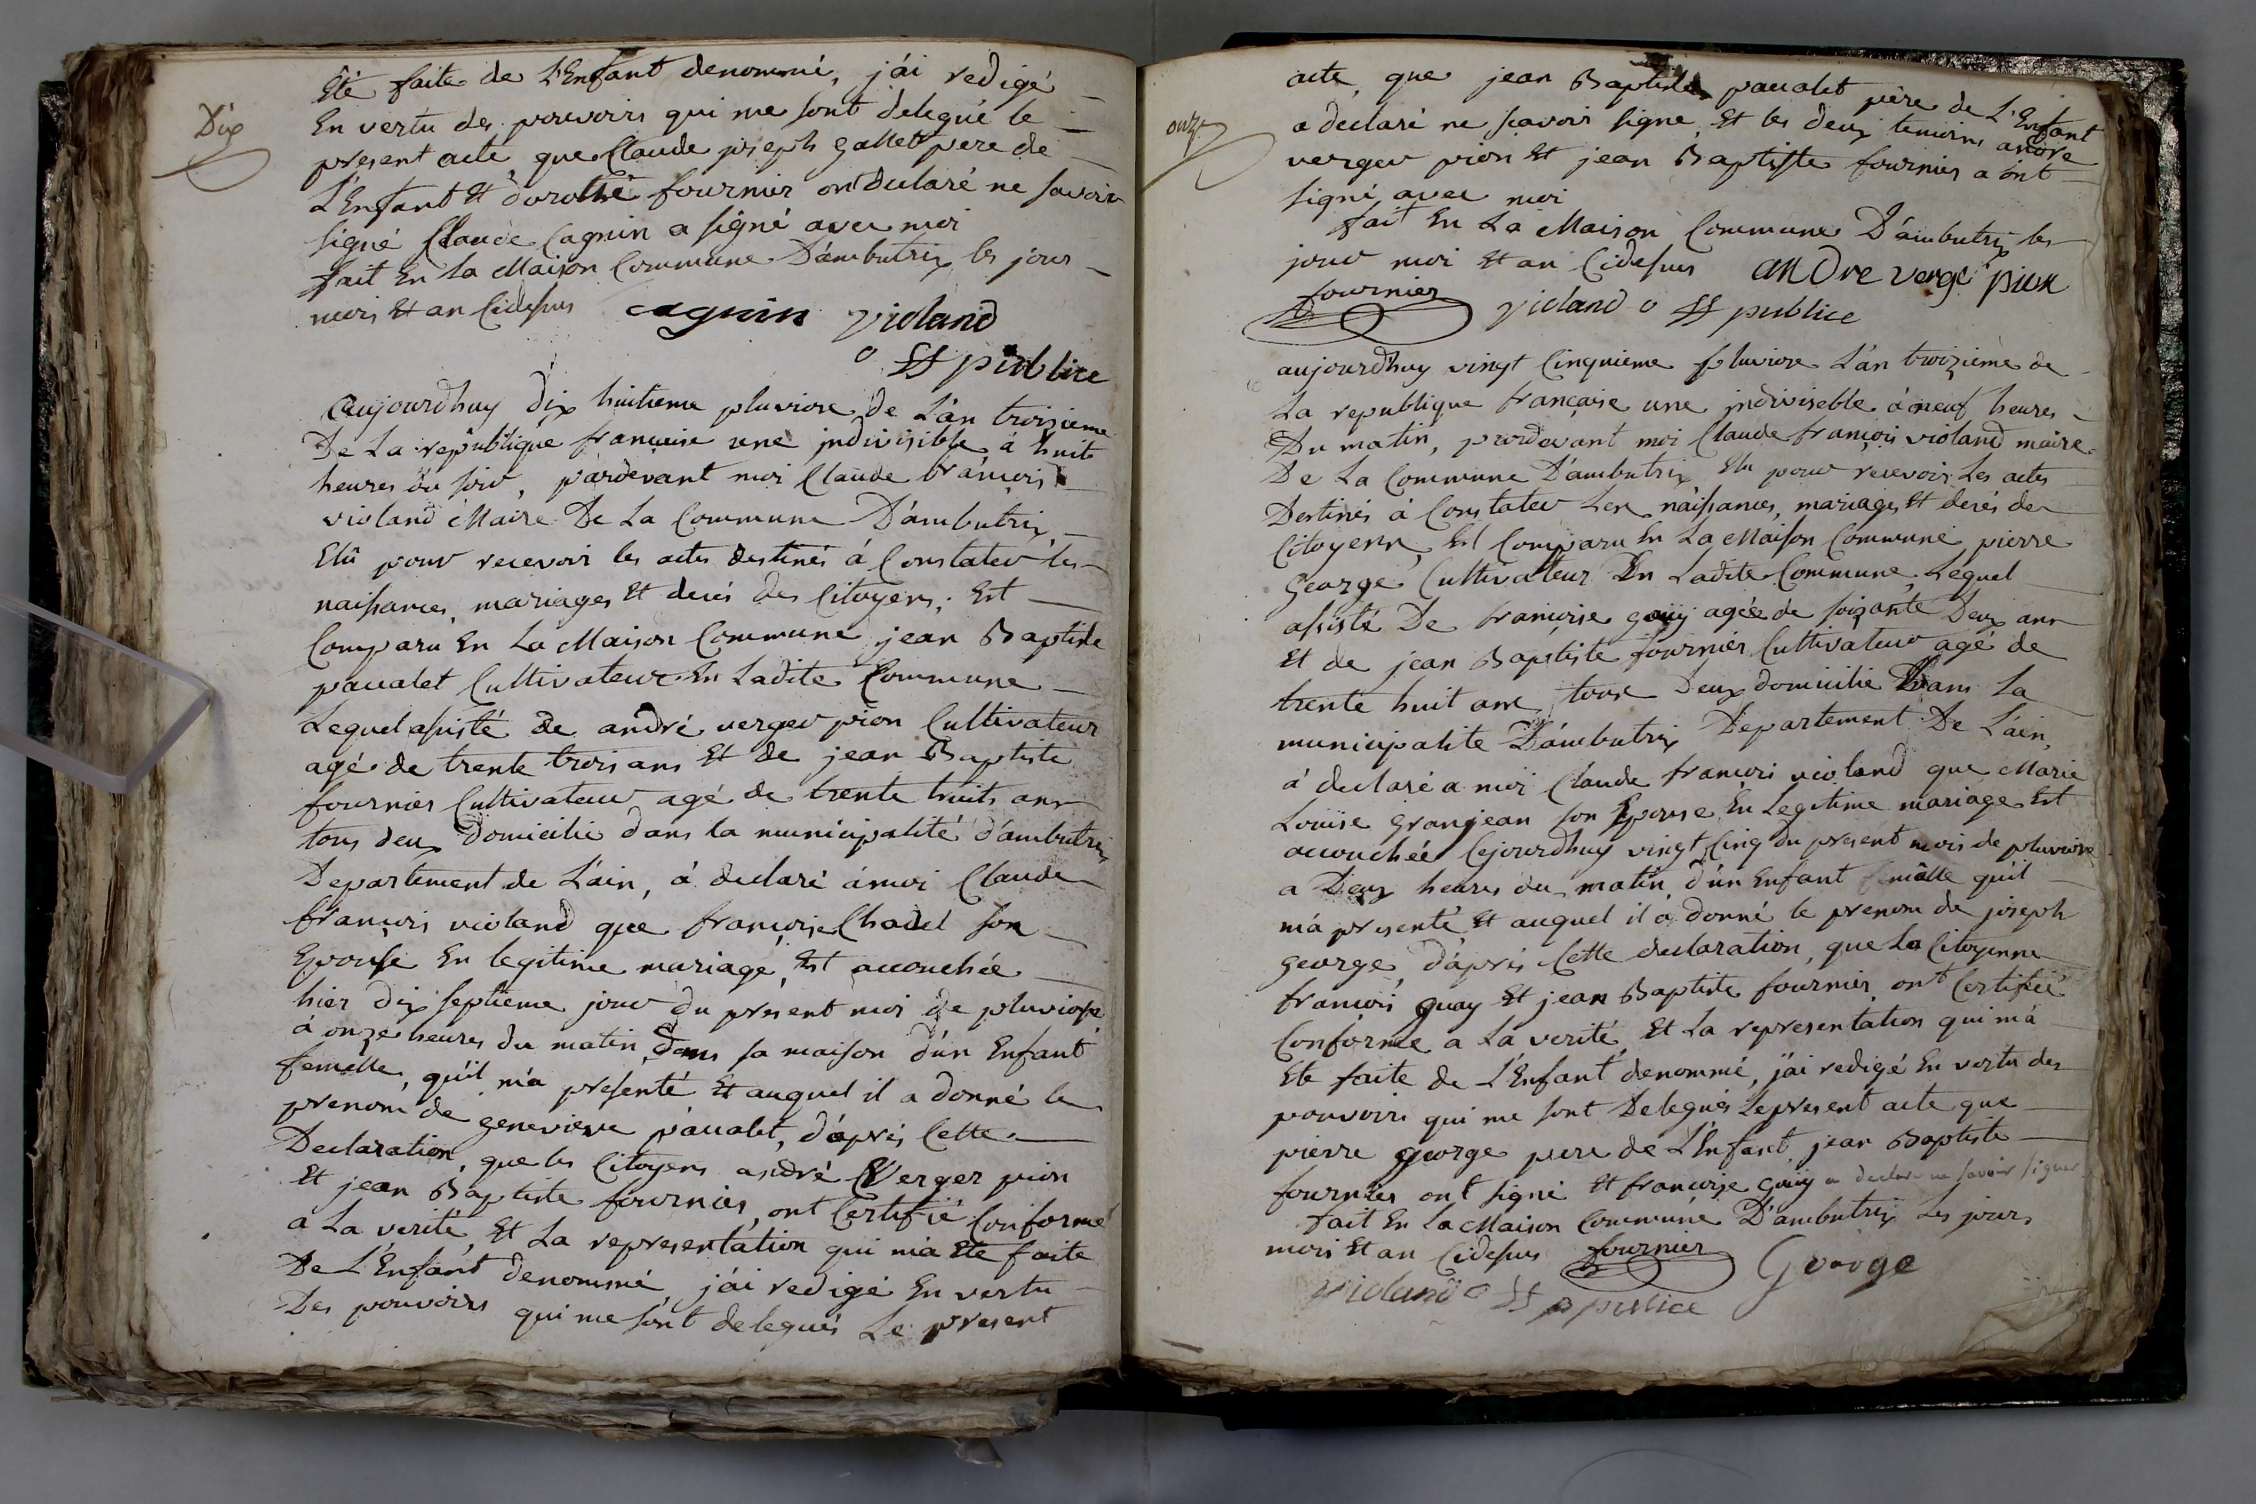 Dix
Eté faite de L'Enfant denommé, j'ai redigé
En vertu des pouvoirs qui me sont delegué le
present acte, que Claude joseph gallet pere de
L'Enfant et dorothé fournier ont declaré ne savoir
signé Claude Cagnin a signé avec moi
fait En la Maison Commune D'ambutrix les jour
mois et an Cidesus cagnin violand
o ff publice
aujourdhuy dix huitieme pluviose de L'an troisieme
De La republique francaise une indivisible à huit
heures du soir, pardevant moi Claude francois
violand Maire De La Commune D'ambutrix
Elû pour recevoir les actes destinés à Constater les
naissances, mariages et decés des Citoyens; Est
Comparu En La Maison Commune jean Baptiste
paualet Cultivateur En Ladite Commune
Lequel assisté de andré verger pion Cultivateur
agé de trente trois ans et de jean Baptiste
fournier Cultivateur agé de trente huit ans
tous deux domicilié dans la municipalité d'ambutrix
Departement de L'ain, à declaré à moi Claude
françois violand que francoise Chadel son
Epouse En legitime mariage, Est accouchée
hier dix septieme jour du present moi de pluviose
à onze heures du matin, dans sa maison d'ún Enfant
femelle, qu'il m'a presenté et auquel il a donné le
prenom de genevieve paualet, d'aprés Cette
Declaration, que les Citoyens andré Verger pion
et jean Baptiste fournier, ont Certifié Conforme
a La verité, et La representation qui m'a Eté faite
De L'Enfant denommé, j'ai redigé En vertu
Des pouvoirs qui me sont delegués Le present
onze
acte, que jean Baptiste paualet père de L'Enfant
a declaré ne scavoir signe, et les deux temoins andre
verger pion et jean Baptiste fournier a ont
signé avec moi
fait En La Maison Commune D'ambutrix les
jour moi et an Cidesus andre verge pion
fournier violand o ff publice
aujourdhuy vingt Cinquieme pluviose L'an troizieme de
La republique francaise une indiviseble à neuf heures
Du matin, pardevant moi Claude françois violand maire
De La Commune D'ambutrix Elu pour recevoir Les actes
Destinés à Constater Les naissances, mariages et decés des
Citoyens, Est Comparu En La Maison Commune pierre
George Cultivateur En Ladite Commune, Lequel
assisté De francoise goüy agée de soixante Deux ans
et de jean Baptiste fournier Cultivateur agé de
trente huit ans tous Deux domicilié Dans La
municipalite D'ambutrix Departement De L'ain,
à declaré a moi Claude francois violand que Marie
Louise granjean son Epouse En Legitime mariage Est
accouchée Cejourdhuy vingt Cinq du present mois de pluviose
a Deux heures du matin d'ún Enfant mâlle qu'il
m'a presenté et auquel il a donné le prenom de joseph
george, d'aprés Cette declaration, que La Citoyenne
francois guay et jean Baptiste fournier ont Certifié
Conforme a La verité, et La representation qui m'a
Eté faite de L'Enfant denommé, j'ai redigé En vertu des
pouvoirs qui me sont Delegués Le present acte que
pierre george pere de L'Enfant jean Baptiste
fournier ont signé et francoise goüy a declare ne savoir signer
fait En La Maison Commune D'ambutrix Les jours
mois et an Cidesus fournier George
violand o ff p publice